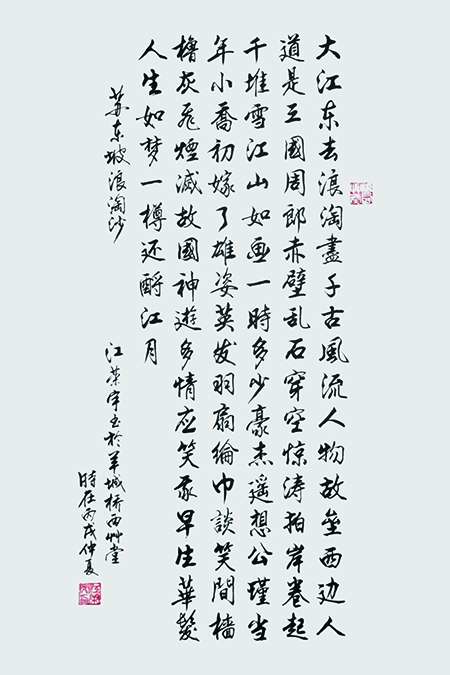 大江东去浪淘盡千古風流人物故垒西边人
道是三國周郎赤壁乱石穿空惊涛拍岸卷起
千堆雪江山如画一時多少豪杰遥想公瑾当
年小喬初嫁了雄姿英发羽扇綸巾談笑間檣
櫓灰飛煙滅故國神遊多情应笑我早生華髮
人生如梦一樽还酹江月
苏东坡浪淘沙
江荣宇书於羊城桥西艸堂
時在丙戌仲夏